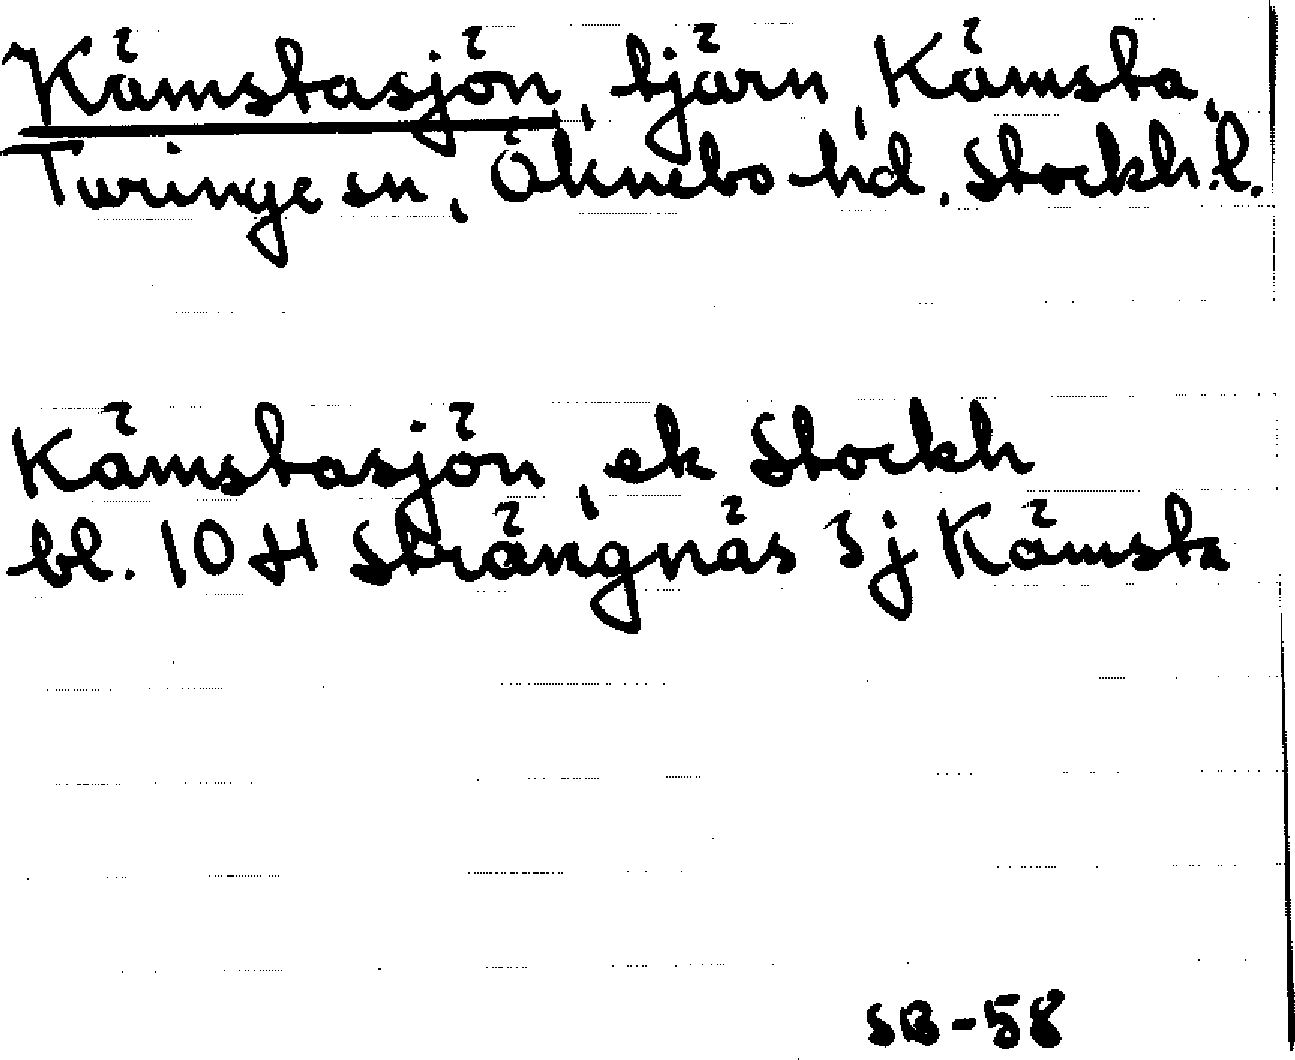 Kämstasjön, tjärn, Kämsta,
Turinge sn, Öknebo hd. Stockh. l.
Kämstasjön, ek Stockh
bl. 10 H Strängnäs Sj Kämsta
SB-58